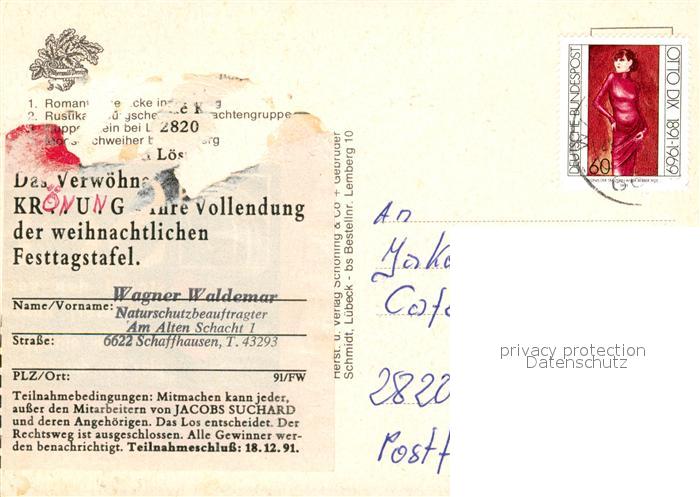 1. Roman
2. Rustika
chweiher
achtengruppe
2820
Lös
Das Verwöhna
KRÖNUNG - Ihre Vollendung
der weihnachtlichen
Festtagstafel.
Name/Vorname:
Wagner Waldemar
Naturschutzbeauftragter
Am Alten Schacht 1
Straße:
6622 Schaffhausen, T. 43293
PLZ/Ort:
91/FW
Teilnahmebedingungen: Mitmachen kann jeder,
außer den Mitarbeitern von JACOBS SUCHARD
und deren Angehörigen. Das Los entscheidet. Der
Rechtsweg ist ausgeschlossen. Alle Gewinner wer-
den benachrichtigt. Teilnahmeschluß: 18.12.91.
Herst. u. Verlag Schöning & Co + Gebrüder
Schmidt, Lübeck - bs Bestellnr. Lemberg 10
DEUTSCHE BUNDESPOST
60
OTTO DIX 1891-1969
An
2820
Postf
privacy protection
Datenschutz